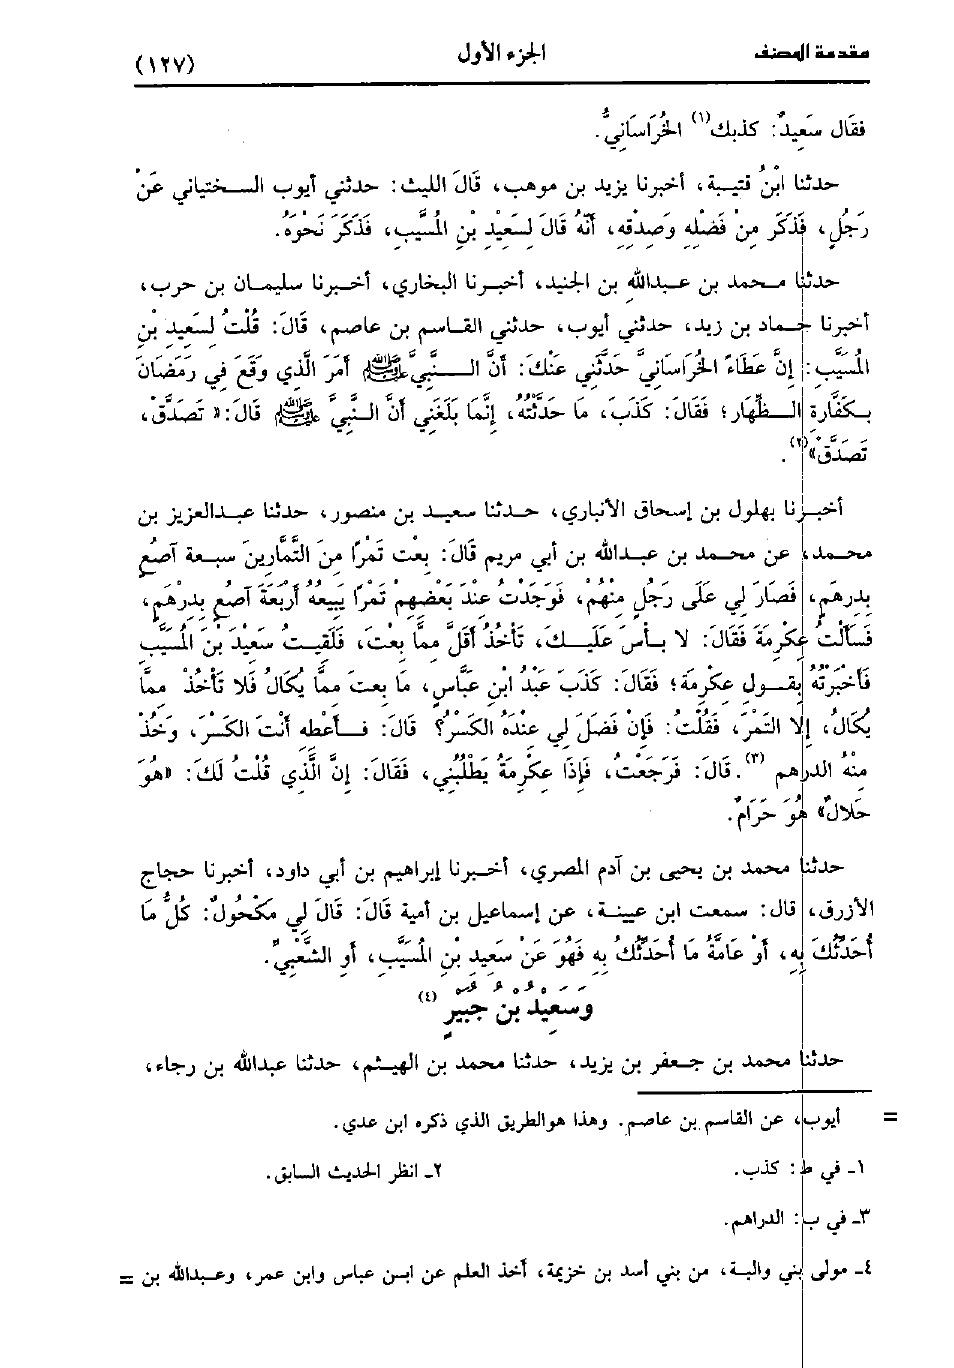 مقدمة المصنف الجزء الأول (١٢٧)
فقَال سَعِيدٌ: كذبك(١) الخُرَاسَانِيُّ.
حدثنا ابْنُ قتيبة، أخبرنا يزيد بن موهب، قَالَ الليث: حدثني أيوب السختياني عَنْ
رَجُلٍ، فَذَكَر مِنْ فَضْلِهِ وَصِدْقِهِ، أَنَّهُ قَالَ لِسَعِيْدِ بْنِ الْمُسَيَّبِ، فَذَكَرَ نَحْوَهُ.
حدثنا محمد بن عبدالله بن الجنيد، أخبرنا البخاري، أخبرنا سليمان بن حرب،
أخبرنا حماد بن زيد، حدثني أيوب، حدثني القاسم بن عاصم، قَالَ: قُلْتُ لسَعِيدِ بْنِ
الْمُسَيَّبِ: إِنَّ عَطَاءً الخُرَاسَانِيَّ حَدَّثَنِي عَنْكَ: أَنَّ النَّبِيَّ ﷺ أَمَرَ الَّذِي وَقَعَ فِي رَمَضَانَ
بِكَفَّارَةِ الظِّهَارِ؛ فَقَالَ: كَذَبَ، مَا حَدَّثْتُهُ، إِنَّمَا بَلَغَنِي أَنَّ النَّبِيَّ ﷺ قَالَ: « تَصَدَّقْ،
تَصَدَّقْ»(٢).
أخبرنا بهلول بن إسحاق الأنباري، حدثنا سعيد بن منصور، حدثنا عبدالعزيز بن
محمد، عن محمد بن عبدالله بن أبي مريم قَالَ: بِعْت تَمْرًا مِنَ التَّمَّارِينَ سبعة آصُعٍ
بِدرهَمٍ، فَصَارَ لِي عَلَى رَجُلٍ مِنْهُمْ، فَوَجَدْتُ عِنْدَ بَعْضِهِمْ تَمْرًا يَبِيعُهُ أَرْبَعَةَ آصُعٍ بِدِرْهَمٍ،
فَسَأَلْتُ عِكْرِمَةَ فَقَالَ: لا بَأْسَ عَلَيْكَ، تَأْخُذُ أَقَلَّ مِمَّا بِعْتَ، فَلَقِيتُ سَعِيْدَ بْنَ الْمُسَيَّبِ
فَأَخْبَرْتُهُ بِقَوْلِ عِكْرِمَةَ؛ فَقَالَ: كَذَبَ عَبْدُ ابْنِ عَبَّاسٍ، مَا بِعتَ مِمَّا يُكَالُ فَلا تَأْخُذْ مِمَّا
يُكَالُ، إِلا التَمْرَ، فَقُلْتُ: فَإِنْ فَضَلَ لِي عِنْدَهُ الكَسْرُ؟ قَالَ: فَأَعْطِهِ أَنْتَ الكَسْرَ، وَخُذْ
مِنْهُ الدرهم (٣). قَالَ: فَرَجَعْتُ، فَإِذَا عِكْرِمَةُ يَطْلُبُنِي، فَقَالَ: إِنَّ الَّذِي قُلْتُ لَكَ: «هُوَ
حَلالٌ» هُوَ حَرَامٌ.
حدثنا محمد بن يحيى بن آدم المصري، أخبرنا إبراهيم بن أبي داود، أخبرنا حجاج
الأزرق، قال: سمعت ابن عيينة، عن إسماعيل بن أمية قَالَ: قَالَ لِي مَكْحُولٌ: كُلُّ مَا
أُحَدِّثُكَ بِهِ، أَوْ عَامَّةُ مَا أُحَدِّثُكَ بِهِ فَهُوَ عَنْ سَعِيدِ بْنِ الْمُسَيَّبِ، أَوِ الشَّعْبِيِّ.
وَسَعِيْدُ بْنُ جُبَيْرٍ (٤)
حدثنا محمد بن جعفر بن يزيد، حدثنا محمد بن الهيثم، حدثنا عبدالله بن رجاء،
= أيوب، عن القاسم بن عاصم. وهذا هوالطريق الذي ذكره ابن عدي.
١ـ في ط: كذب. ٢ـ انظر الحديث السابق.
٣ـ في ب: الدراهم.
٤ـ مولى بني والبة، من بني أسد بن خزيمة، أخذ العلم عن ابن عباس وابن عمر، وعبدالله بن =